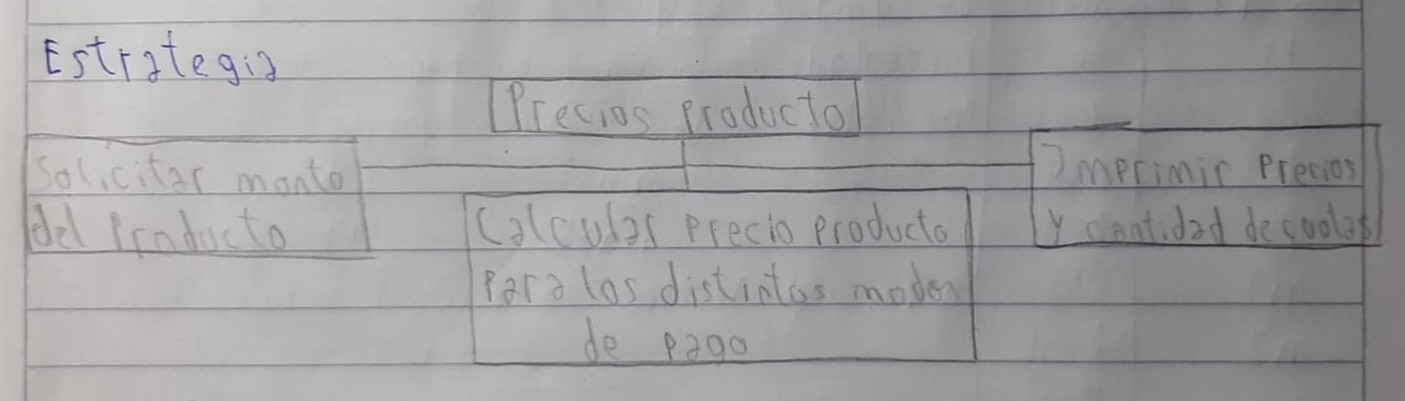 Estrategia
Precios producto
Solicitar monto
del Producto
Calcular Precio Producto
Para los distintos modos
de pago
Imprimir Precios
y cantidad de cootas